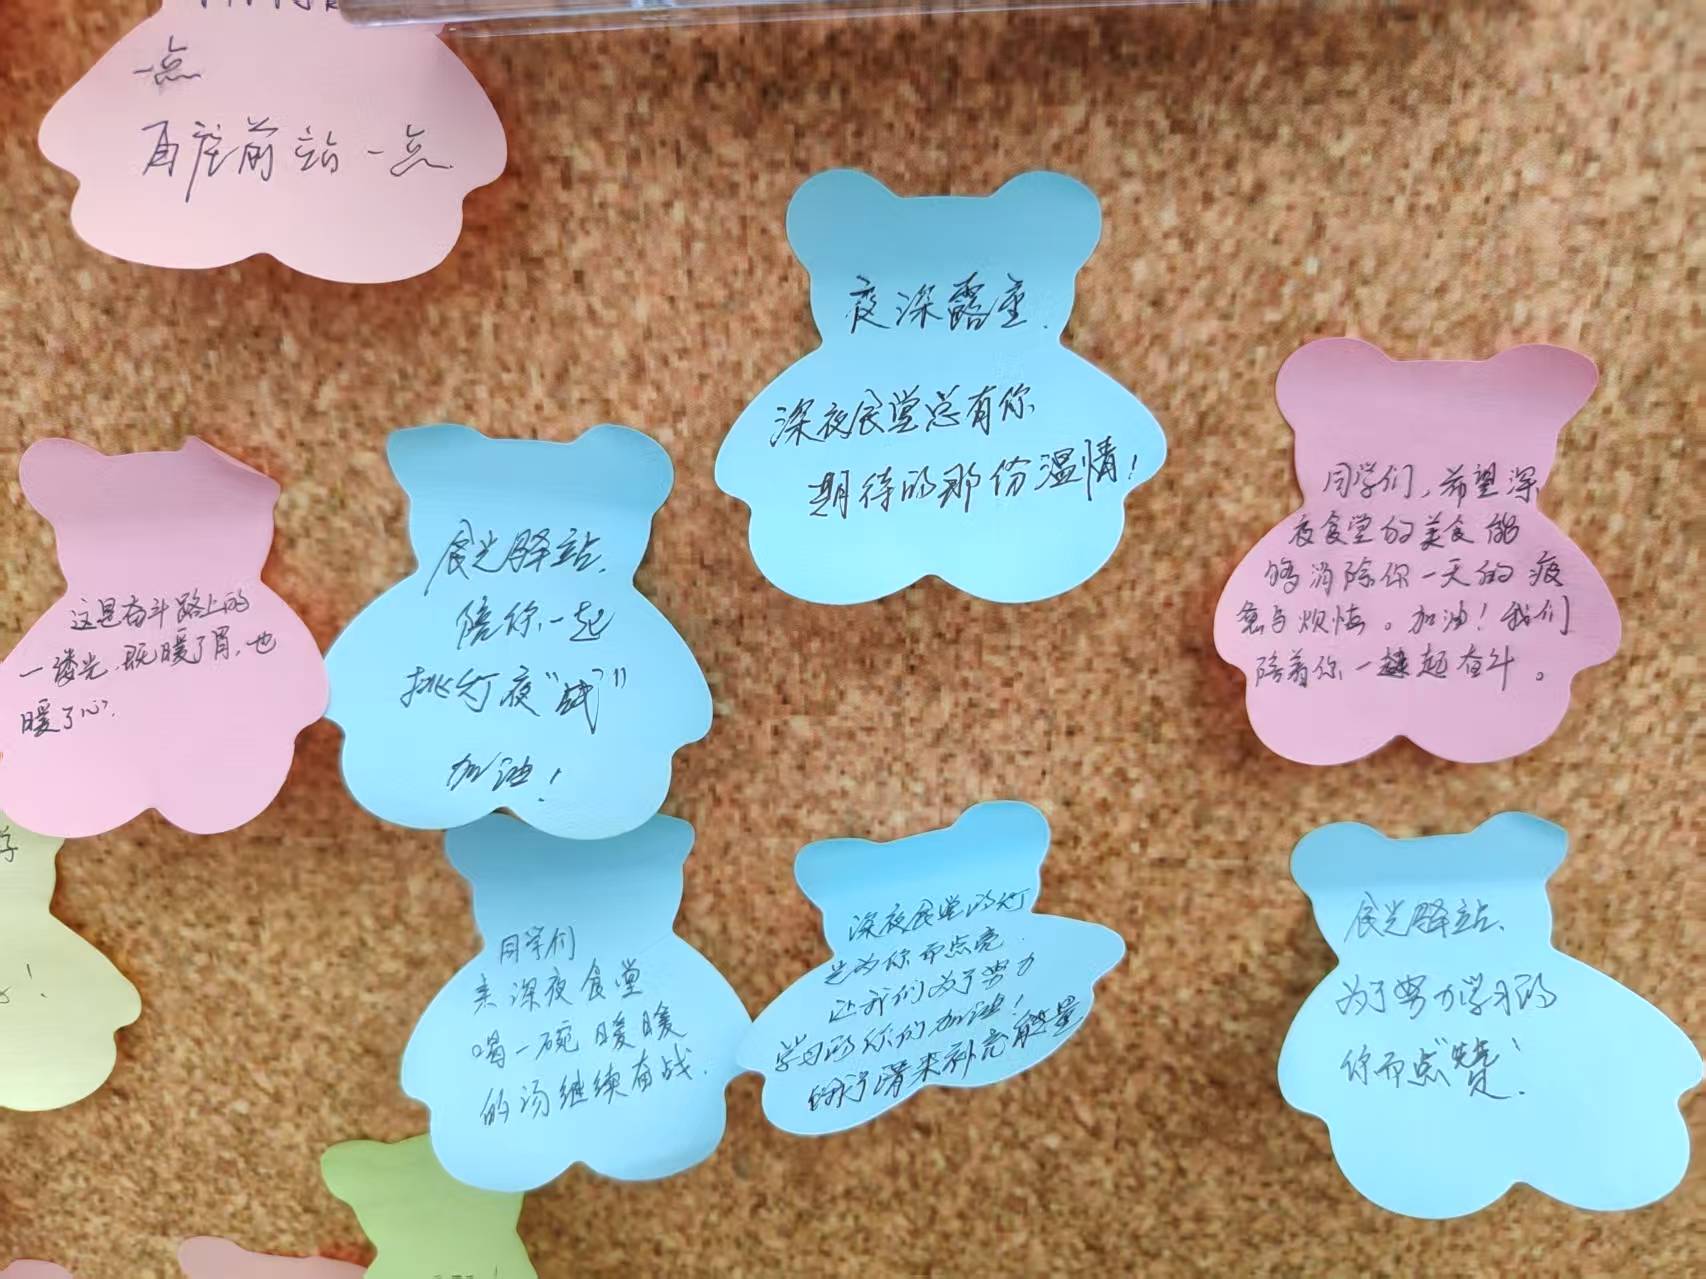 一点
再往前站一点
夜深露重.
深夜食堂总有你
期待的那份温情!
同学们,希望深
夜食堂的美食能
够消除你一天的疲
惫与烦恼。加油!我们
陪着你一起奋斗。
这是奋斗路上的
一缕光,既暖了胃,也
暖了心.
食光驿站,
陪你一起
挑灯夜“战”
加油!
同学们
来深夜食堂
喝一碗暖暖
的汤继续奋战.
深夜食堂的灯
光为你而点亮.
让我们为了努力
学习的你们加油!
来补充能量
食光驿站、
为了努力学习的
你而点赞!
学
!